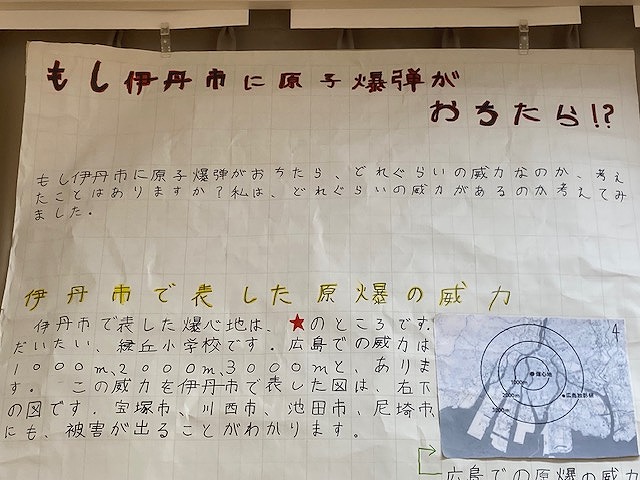 もし伊丹市に原子爆弾が
おちたら!?
もし伊丹市に原子爆弾がおちたら、どれぐらいの威力なのか、考え
たことはありますか？私は、どれぐらいの威力があるのか考えてみ
ました。
伊丹市で表した原爆の威力
伊丹市で表した爆心地は、★のところです。
だいたい、緑丘小学校です。広島での威力は
1000m、2000m、3000mと、ありま
す。この威力を伊丹市で表した図は、右下
の図です。宝塚市、川西市、池田市、尼埼市、
にも、被害が出ることがわかります。
4
爆心地
1000m
2000m
3000m
広島での原爆の威力